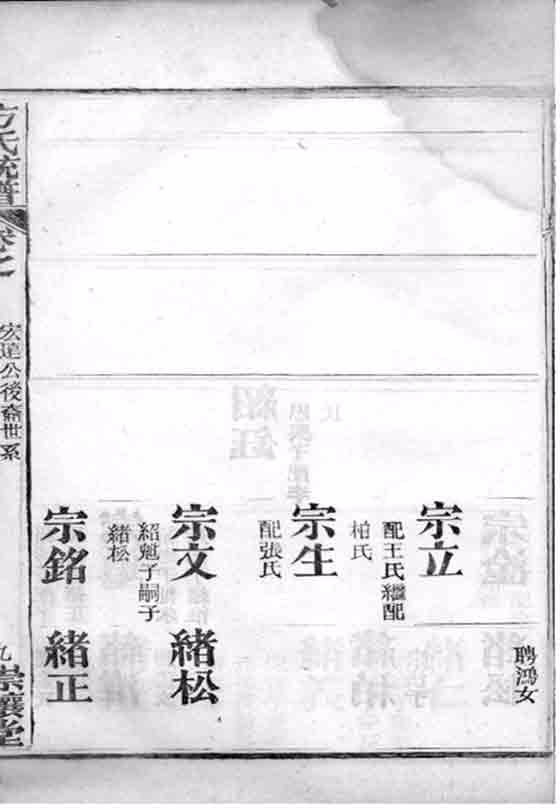 聘鴻女
宗立
配王氏繼配
柏氏
宗生
配張氏
宗文
紹魁子嗣子
緒松
緒松
宗銘
緒正
方氏統譜
卷之
宏達公後裔世系
九
崇讓堂